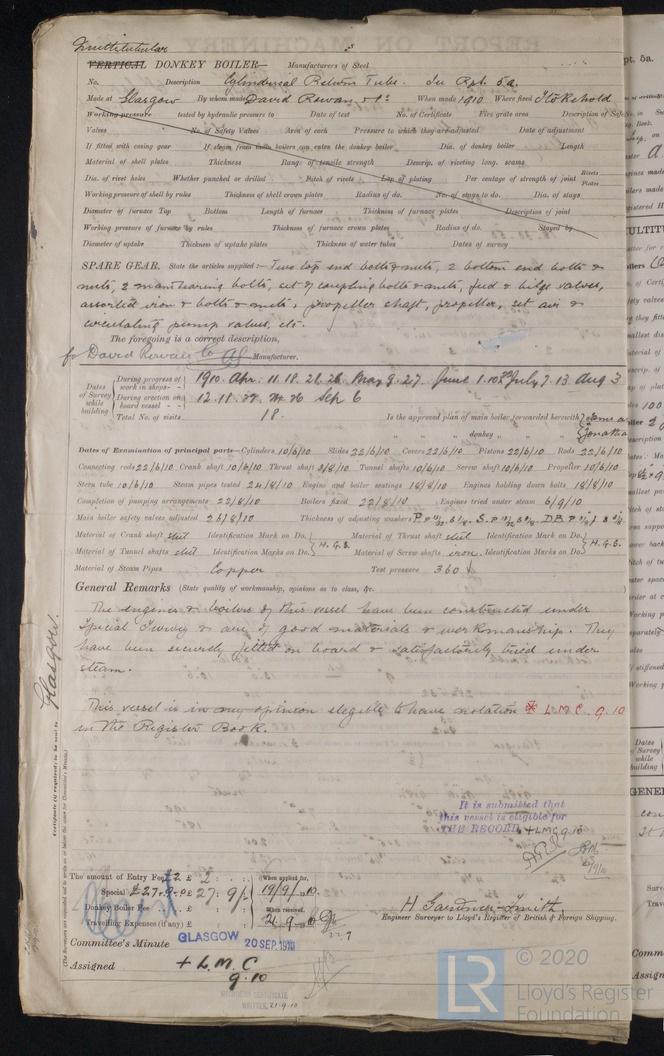 Multitubular
3
VERTICAL DONKEY BOILER— Manufacturers of Steel
No. Description Cylindrical Return Tube. See Rpt. 5a.
Made at Glasgow By whom made David Rowan & Co. When made 1910 Where fixed Stokehold
Working pressure tested by hydraulic pressure to Date of test No. of Certificate Fire grate area Description of Safety
Valves No. of Safety Valves Area of each Pressure to which they are adjusted Date of adjustment
If fitted with casing gear If steam from main boilers can enter the donkey boiler Dia. of donkey boiler Length
Material of shell plates Thickness Range of tensile strength Descrip. of riveting long. seams
Dia. of rivet holes Whether punched or drilled Pitch of rivets Lap of plating Per centage of strength of joint Rivets Plates
Working pressure of shell by rules Thickness of shell crown plates Radius of do. No. of stays to do. Dia. of stays
Diameter of furnace Top Bottom Length of furnace Thickness of furnace plates Description of joint
Working pressure of furnace by rules Thickness of furnace crown plates Radius of do. Stayed by
Diameter of uptake Thickness of uptake plates Thickness of water tubes Dates of survey
SPARE GEAR. State the articles supplied:— Two top end bolts & nuts, 2 bottom end bolts &
nuts, 2 main bearing bolts, set of coupling bolts & nuts, feed & bilge valves,
assorted iron & bolts & nuts, propeller shaft, propeller, set air &
circulating pump valves, etc.
The foregoing is a correct description,
for David Rowan & Co Manufacturer.
Dates of Survey while building
During progress of work in shops - - 1910. Apr. 11. 18. 21. 26. May 9. 27. June 1. 10. 22 July 7. 13 Aug 3
During erection on board vessel - - - 12. 18. 22. 24. 26 Sep 6
Total No. of visits 18. Is the approved plan of main boiler forwarded herewith
" " " donkey " "
Dates of Examination of principal parts—Cylinders 10/6/10 Slides 22/6/10 Covers 22/6/10 Pistons 22/6/10 Rods 22/6/10
Connecting rods 22/6/10 Crank shaft 10/6/10 Thrust shaft 3/8/10 Tunnel shafts 10/6/10 Screw shaft 10/6/10 Propeller 10/6/10
Stern tube 10/6/10 Steam pipes tested 24/8/10 Engine and boiler seatings 18/8/10 Engines holding down bolts 18/8/10
Completion of pumping arrangements 22/8/10 Boilers fixed 22/8/10 Engines tried under steam 6/9/10
Main boiler safety valves adjusted 26/8/10 Thickness of adjusting washers
Material of Crank shaft steel Identification Mark on Do. H.G.S. Material of Thrust shaft steel Identification Mark on Do. H.G.S.
Material of Tunnel shafts steel Identification Marks on Do. Material of Screw shafts iron Identification Marks on Do.
Material of Steam Pipes Copper Test pressure 360 lb
General Remarks (State quality of workmanship, opinions as to class, &c.
The engines & boilers of this vessel have been constructed under
Special Survey & are of good materials & workmanship. They
have been securely fitted on board & satisfactorily tried under
steam.
This vessel is in my opinion eligible to have notation + L.M.C. 9.10
in the Register Book.
It is submitted that
this vessel is eligible for
THE RECORD + LMC 9.10
Glasgow.
Certificate (if required) to be sent to
(The Surveyors are requested not to write on or below the space for Committee's Minute.)
The amount of Entry Fee £2 £ 2 : : When applied for,
Special £27-9-0 £ 27 : 9/- 19/9/10
Donkey Boiler Fee £ : : When received,
Travelling Expenses (if any) £ : : 21.9.10
H Gardner-Smith
Engineer Surveyor to Lloyd's Register of British & Foreign Shipping.
Committee's Minute GLASGOW 20 SEP. 1910
Assigned + L.M.C
9.10
MACHINERY CERTIFICATE
WRITTEN 21.9.10
© 2020
LR Lloyd's Register
Foundation